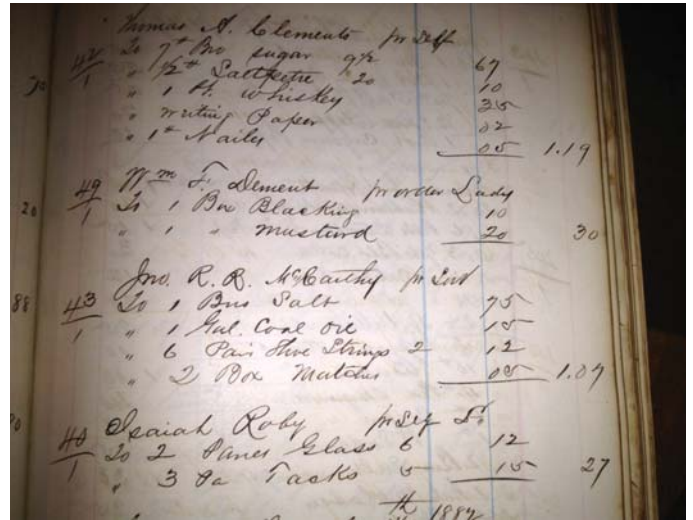 Thomas A. Clements pr Self
42/1 To 7# Bro sugar 9½ 67
" ½# Saltpetre 20 10
" 1 Pt. Whiskey 35
" writing Paper 02
" 1# Nails 05 1.19
49/1 Wm F. Dement pr order Lady
20 To 1 Box Blacking 10
" 1 " Mustard 20 30
Jno. R. R. McCarthy pr
88 43/1 To 1 Bus Salt 75
" 1 Gal. Coal Oil 15
" 6 Pair Shoe Strings 2 12
" 2 Box Matches 05 1.07
40/1 Isaiah Roby pr Self
To 2 Panes Glass 6 12
" 3 Pa Tacks 5 15 27
th 1887